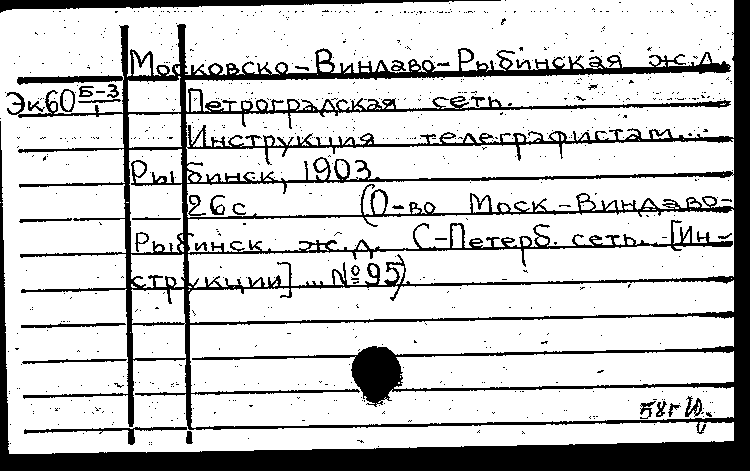 Московско-Виндаво-Рыбинская ж.д.
Эк60 Б-3/1 Петроградская сеть.
Инструкция телеграфистам...
Рыбинск, 1903.
26с. (О-во Моск.-Виндаво-
Рыбинск. ж.д. С-Петерб. сеть. [Ин-
струкции] ... №95).